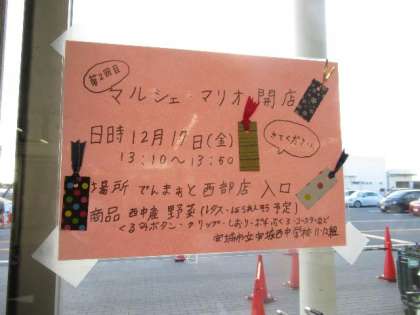 第2回目
マルシェ・マリオ 開店
日時 12月17日(金)
13:10〜13:50
きてください。
場所 でんまぁと 西部店 入口
商品 西中産 野菜(レタス・ほうれん草 予定)
くるみボタン・クリップ・しおり・コースターなど
安城市立安城西中学校 11・12組